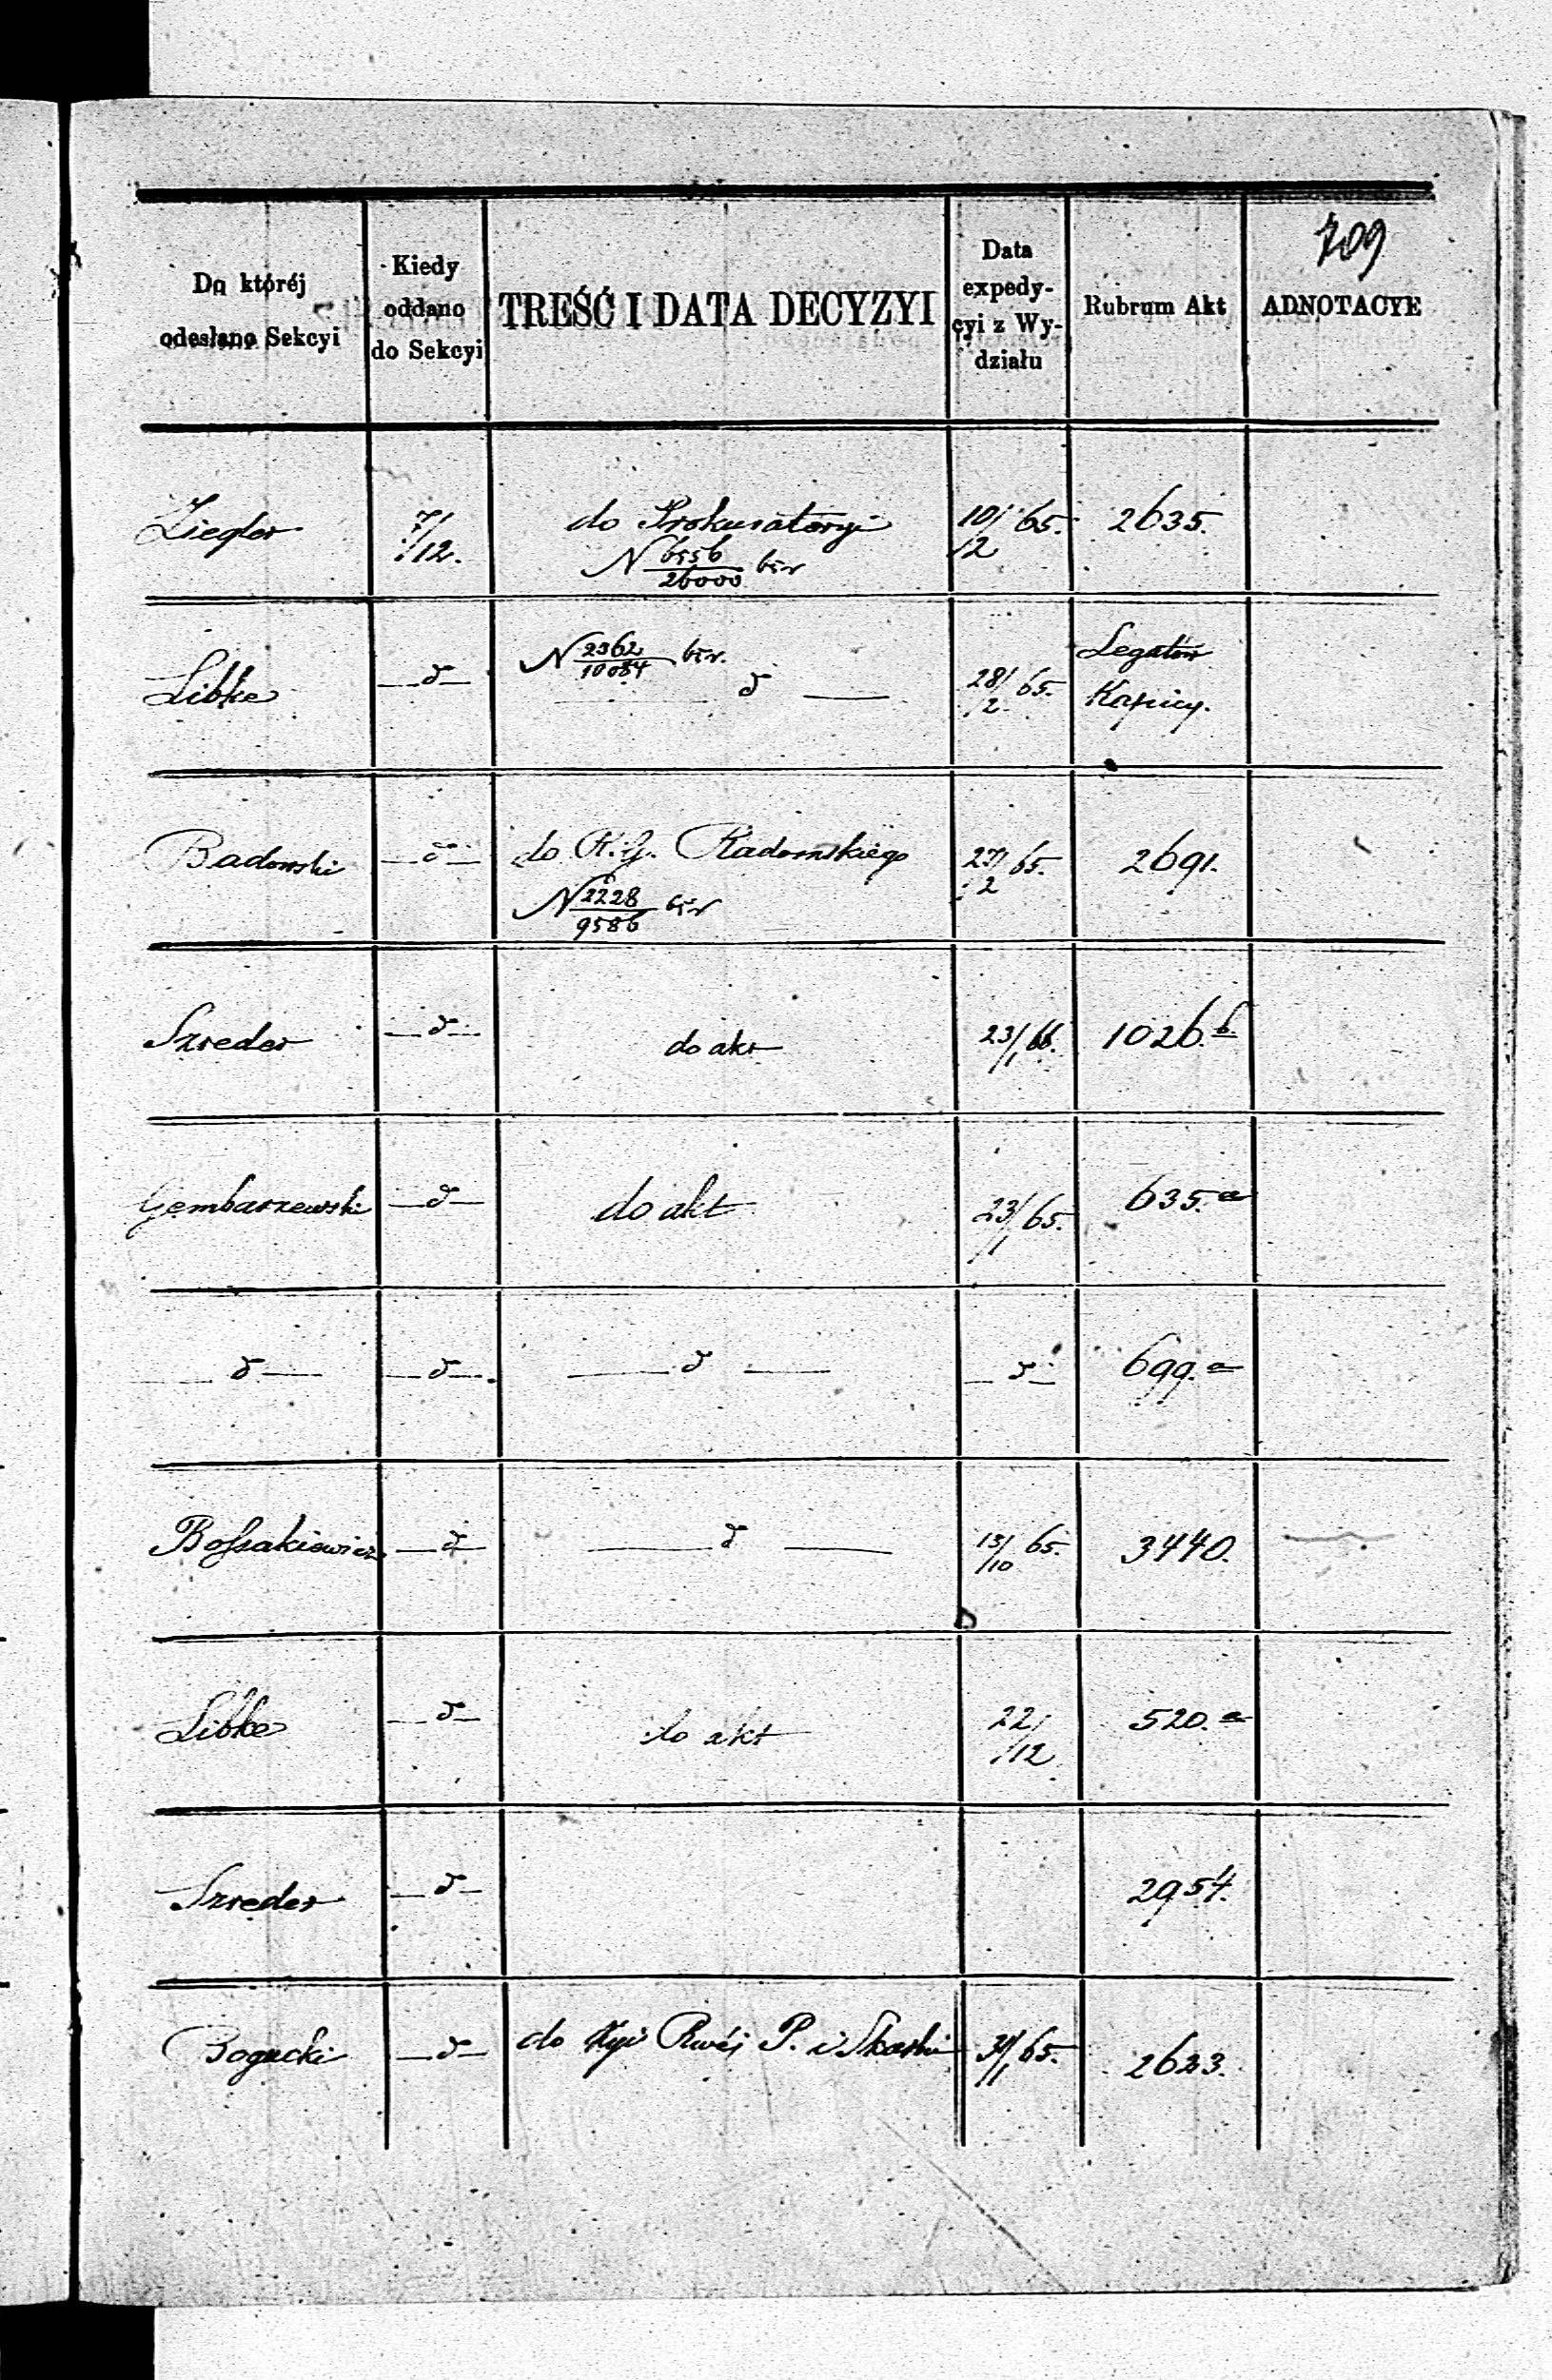 709
Do któréj
odesłano Sekcyi
Kiedy
oddano
do Sekcyi
TREŚĆ I DATA DECYZYI
Data
expedy-
cyi z Wy-
działu
Rubrum Akt
ADNOTACYE
Ziegler 7/12. do Prokuratoryi 10/12 65. 2635.
N 6556/26000
Libke —d— N 2362/10084 28/2 65. Legatów
— d — Kapicy.
Badowski —d— do R. G. Radomskiego 27/2 65. 2691.
N 2228/9586
Szreder —d— do akt 23/1 66. 1026.b
Gembarzewski —d— do akt 23/1 65. 635.a
— d — —d— — d — —d— 699.a
Bossakiewicz —d— — d — 13/10 65. 3440.
Libke —d— do akt 22/12 520.a
Szreder —d— 2954.
Bogucki —d— do Kyi Rwéj P. i Skarbu 31/1 65. 2623.